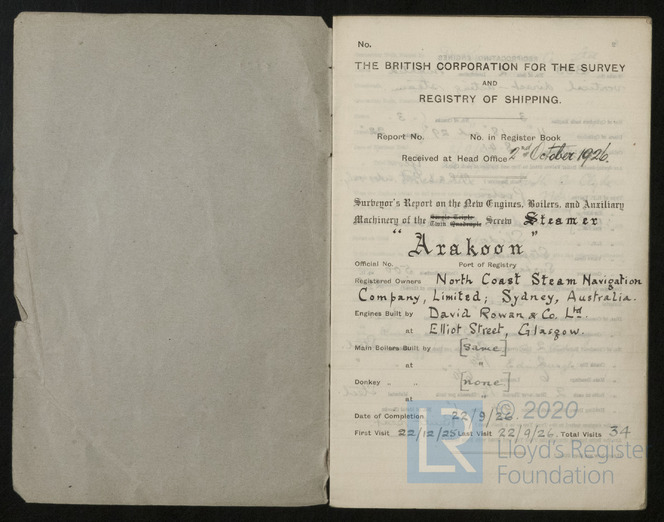 No.
THE BRITISH CORPORATION FOR THE SURVEY
AND
REGISTRY OF SHIPPING.
Report No. No. in Register Book
Received at Head Office 2nd October 1926.
Surveyor's Report on the New Engines, Boilers, and Auxiliary
Machinery of the Single Triple Twin Quadruple Screw Steamer
"Arakoon"
Official No. Port of Registry
Registered Owners North Coast Steam Navigation
Company, Limited; Sydney, Australia.
Engines Built by David Rowan & Co. Ltd
at Elliot Street, Glasgow.
Main Boilers Built by [same]
at "
Donkey " " [none]
at "
Date of Completion 22/9/26.
First Visit 22/12/25 Last Visit 22/9/26. Total Visits 34
LR
© 2020
Lloyd's Register
Foundation